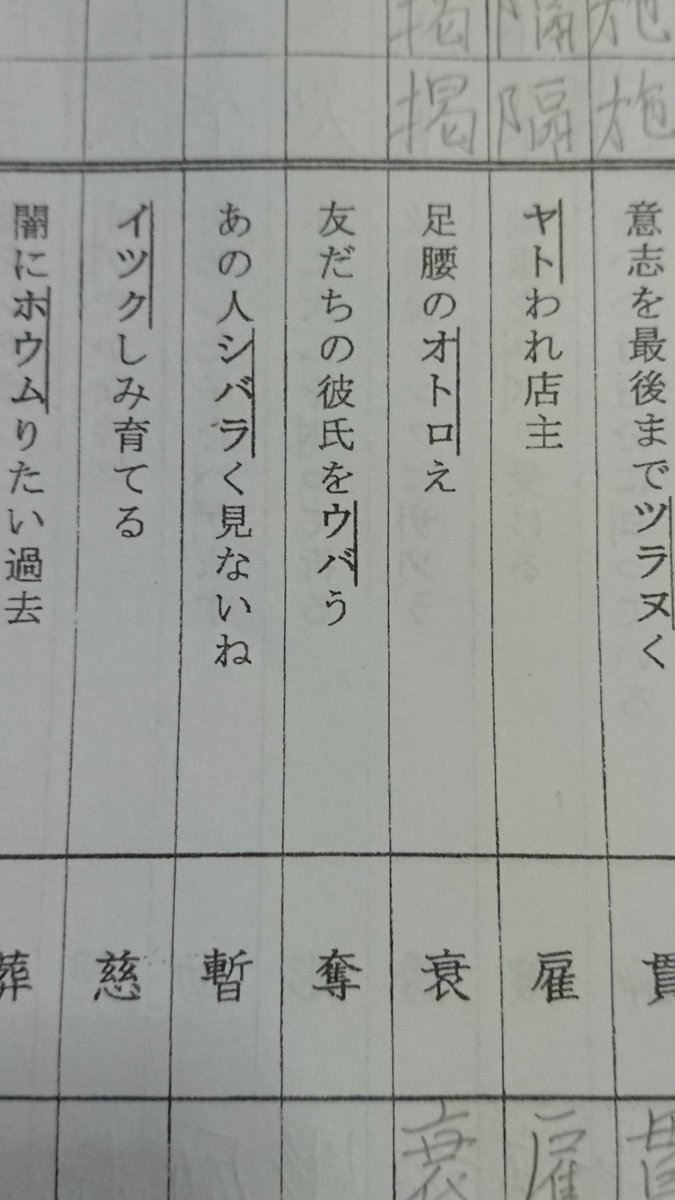 施
施
意志を最後までツラヌく
貫
貫
隔
隔
ヤトわれ店主
雇
雇
掲
掲
足腰のオトロえ
衰
衰
友だちの彼氏をウバう
奪
あの人シバラく見ないね
暫
イツクしみ育てる
慈
闇にホウムりたい過去
葬